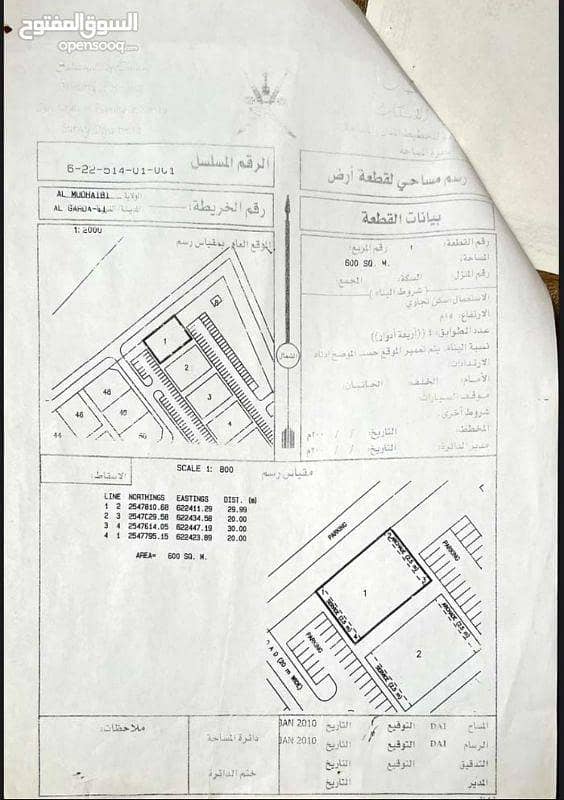 السوق المفتوح
opensooq.com
رسم مساحي لقطعة أرض
الرقم المسلسل
6-22-514-01-001
بيانات القطعة
رقم الخريطة:
الولاية
AL MUDHAIBI
AL GARDA-
رقم القطعة: 1 رقم المربع:
المساحة: 600 SQ. M.
رقم المنزل: السكة: المجمع:
( شروط البناء )
الاستعمال: سكني تجاري
الارتفاع: ١٥م
عدد الطوابق: ٤ ((أربعة أدوار))
نسبة البناء: يتم تعمير الموقع حسب الموضح أدناه
الارتدادات:
الأمام: الخلف: الجانبان:
موقف السيارات:
شروط أخرى:
المخطط: التاريخ: / / ٢٠٠م
مدير الدائرة: التاريخ: / / ٢٠٠م
1: 2000
الموقع العام بمقياس رسم
1
2
3
4
48
46
44
الشمال
الاسقاط:
SCALE 1: 800
مقياس رسم
LINE NORTHINGS EASTINGS DIST. (m)
1 2 2547810.68 622411.29 29.99
2 3 622434.58 20.00
3 4 2547614.05 622447.19 30.00
4 1 2547795.15 622423.89 20.00
AREA= 600 SQ. M.
PARKING
ARCADE (2.5 m)
PARKING
1
TERRACE (2.5 m)
ARCADE (2.5 m)
PARKING
2
TERRACE (2.5 m)
A D (20 m WIDE)
المساح DAI التوقيع التاريخ JAN 2010
الرسام DAI التوقيع التاريخ JAN 2010
التدقيق التوقيع التاريخ
المدير التاريخ
دائرة المساحة
ختم الدائرة
ملاحظات: